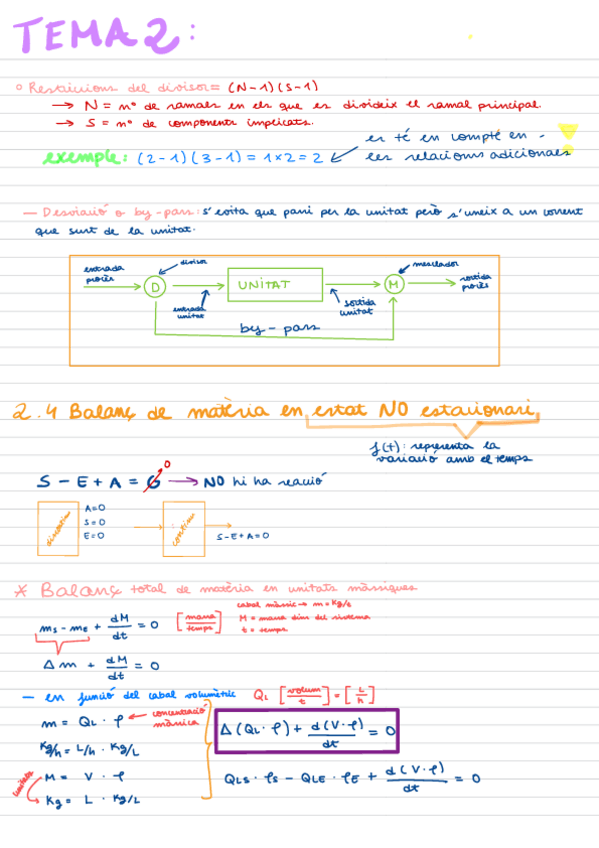 TEMA 2:
° Restriccions del divisor = (N-1)(S-1)
→ N = nº de ramals en els que es divideix el ramal principal.
→ S = nº de components implicats.
exemple: (2-1)(3-1) = 1x2 = 2
es té en compte en
les relacions adicionals
— Desviació o by-pass: s'evita que passi per la unitat però s'uneix a un corrent
que surt de la unitat.
entrada procés
divisor
D
entrada unitat
UNITAT
sortida unitat
mesclador
M
sortida procés
by-pass
2.4 Balanç de matèria en estat NO estacionari
f(t): representa la
variació amb el temps
S - E + A = G 0 → NO hi ha reacció
discontinu
A=0
S=0
E=0
continu
S-E+A=0
* Balanç total de matèria en unitats màssiques
ms - mE + dM/dt = 0 [massa/temps]
cabal màssic → m = kg/t
M = massa dins del sistema
t = temps
Δm + dM/dt = 0
— en funció del cabal volumètric QL [volum/t] = [L/h]
m = QL · ρ ← concentració màssica
Kg/h = L/h · Kg/L
unitats
M = V · ρ
Kg = L · Kg/L
Δ(QL · ρ) + d(V·ρ)/dt = 0
QLS · ρS - QLE · ρE + d(V·ρ)/dt = 0